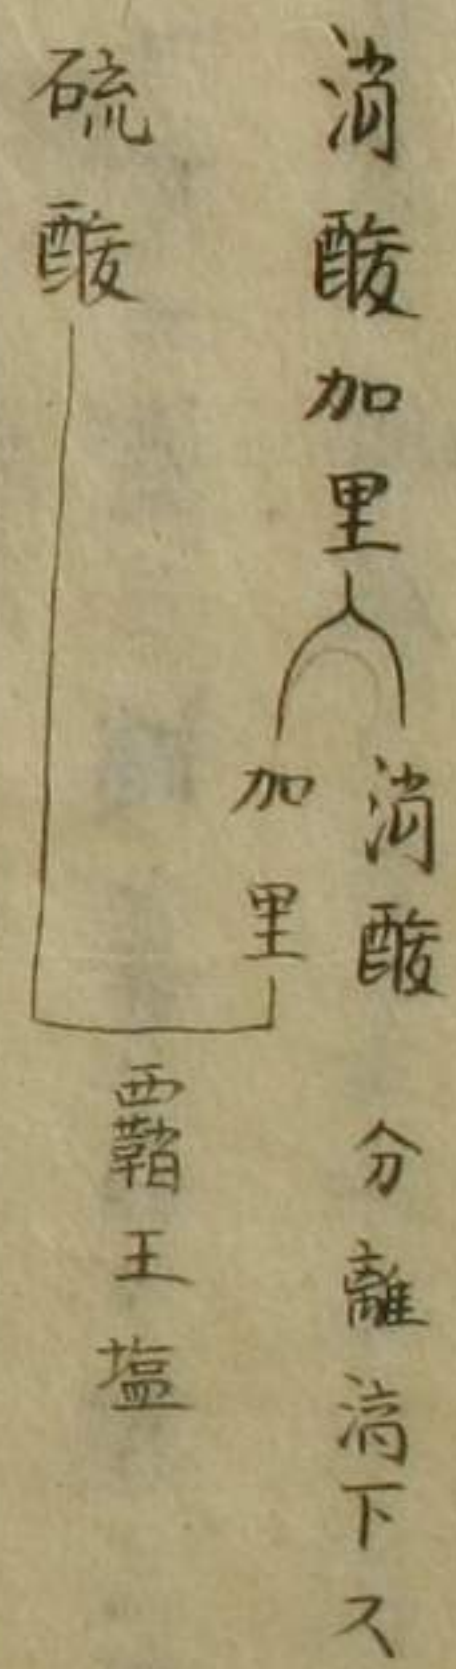 消酸加里
消酸 分離滴下ス
加里
硫酸
覇王塩